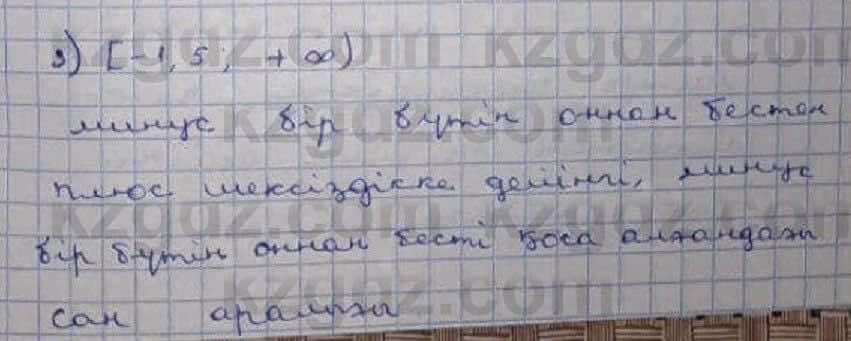 3) [-1,5; +∞)
минус бір бүтін оннан бестен
плюс шексіздікке дейінгі, минус
бір бүтін оннан бесті қоса алғандағы
сан аралығы
kzgdz.com kzgdz.com
kzgdz.com
kzgdz.com kzgdz.com
kzgdz.com